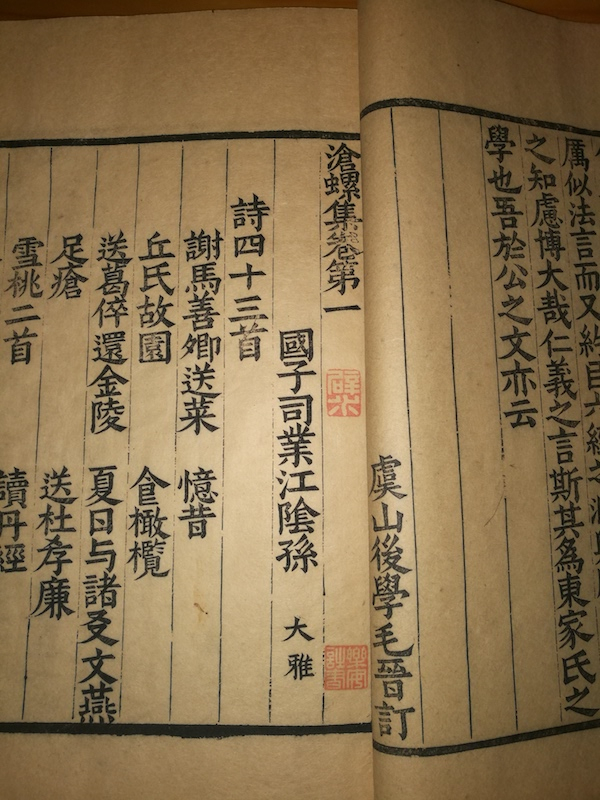 厲似法言而又約自六經之
之知慮博大哉仁義之言斯其爲東家氏之
學也吾於公之文亦云
虞山後學毛晉訂
滄螺集卷第一
國子司業江陰孫 大雅
詩四十三首
謝馬善卿送菜 憶昔
丘氏故園 食橄欖
送葛倅還金陵 夏日与諸友文燕
足瘡 送杜孝廉
雪桃二首 讀丹經